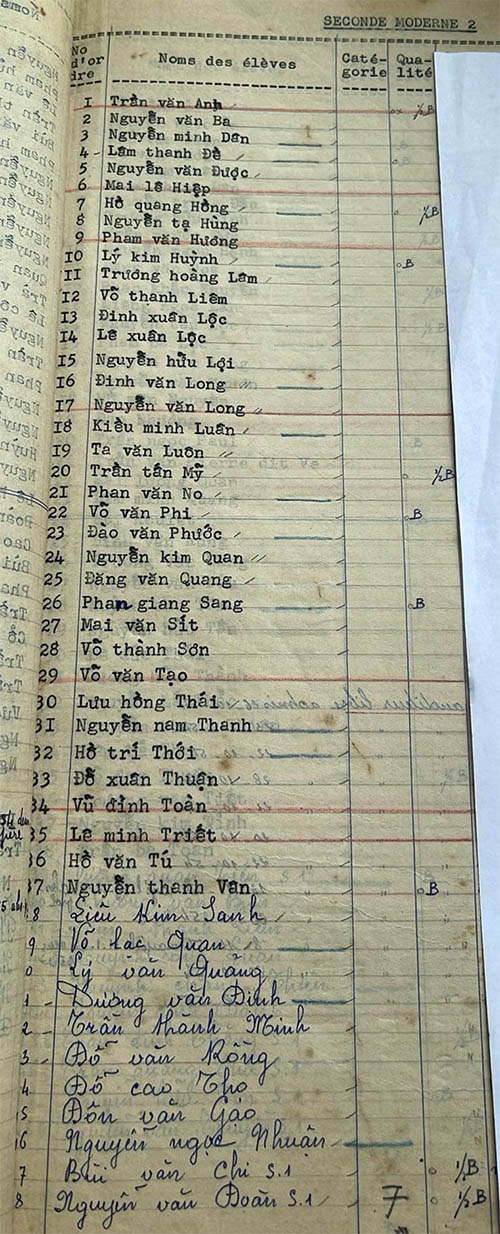 SECONDE MODERNE 2
No d'or dre Noms des élèves Caté-gorie Qua-lité
1 Trần văn Anh ½B
2 Nguyễn văn Ba
3 Nguyễn minh Dân
4 Lâm thanh Đề
5 Nguyễn văn Được
6 Mai lê Hiệp
7 Hồ quang Hồng ½B
8 Nguyễn tạ Hùng
9 Pham văn Hương
10 Lý kim Huỳnh B
11 Trương hoàng Lâm
12 Võ thanh Liêm
13 Đinh xuân Lộc
14 Lê xuân Lộc
15 Nguyễn hữu Lợi
16 Đinh văn Long
17 Nguyễn văn Long
18 Kiều minh Luân
19 Ta văn Luôn
20 Trần tấn Mỹ ½B
21 Phan văn No
22 Võ văn Phi B
23 Đào văn Phước
24 Nguyễn kim Quan
25 Đăng văn Quang
26 Phan giang Sang B
27 Mai văn Sít
28 Võ thành Sơn
29 Võ văn Tạo
30 Lưu hồng Thái
31 Nguyễn nam Thanh
32 Hồ trí Thới
33 Đỗ xuân Thuận
34 Vũ đình Toàn
35 Lê minh Triết
36 Hồ văn Tú
37 Nguyễn thanh Vân B
8 Liêu Kim Sanh
9 Võ lạc Quan
0 Lý văn Quảng
1 Dương văn Đinh
2 Trần thành Minh
3 Đỗ văn Rồng
4 Đỗ cao Thọ
5 Đôn văn Gáo
6 Nguyễn ngọc Nhuận
7 Bùi văn Chi S.1 ½B
8 Nguyễn văn Đoàn S.1 7 ½B